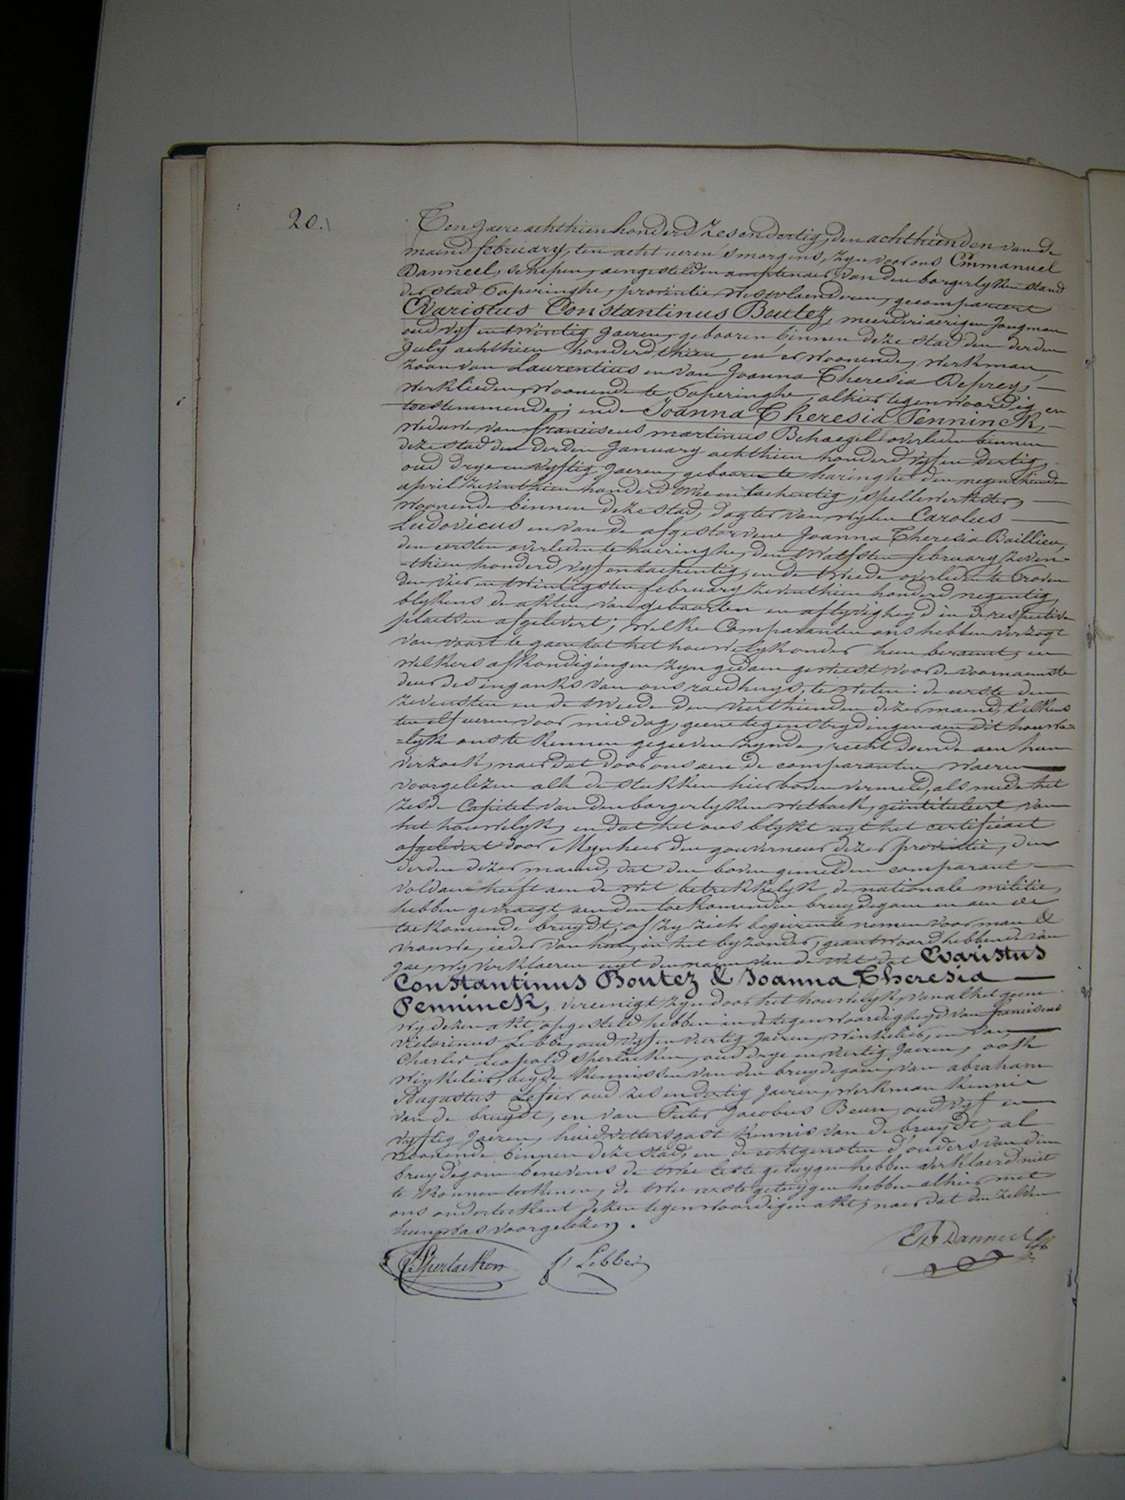 20.
Ten jaere achthien honderd zesendertig, den achthienden van de
maend february, ten acht ueren 's morgens, zyn voor ons Emmanuel
Danneel, schepen, aengestelden amptenaer van den borgerlyken stand
der stad Poperinghe, provintie Westvlaenderen, gecompareert
Evaristus Constantinus Boutez, meerderjaerigen jongman
oud vyf en twintig jaeren, gebooren binnen deze stad den derden
July achthien honderd thien, en er woonende, werkman,
zoon van Laurentius en van Joanna Theresia Deprey,
werklieden, woonende te Poperinghe, alhier tegenwoordig en
toestemmende; ende Joanna Theresia Penninck,
weduwe van franciscus martinus Behaegel overleden binnen
deze stad den derden January achthien honderd vyf en dertig,
oud drye en vyftig jaeren, gebooren te haringhe den negenthienden
april zeventhien honderd twee en tachentig, spellewerkster,
woonende binnen deze stad, dogter van wylen Carolus
Ludovicus en van de afgestorvene Joanna Theresia Baillieu,
den eersten overleden te haeringhe, den twalfsten february zeven-
-thien honderd vyf en tachentig, en de tweede overleden te Proven
den vier en twintigsten february zeventhien honderd negentig,
blykens de akten van geboorten en aflyvigheyd in de respective
plaetsen afgelevert; welke Comparanten ons hebben verzogt
van voort te gaen tot het houwelyk onder hun beraemt, en
welkers afkondigingen zyn gedaen geweest voor de voornaemste
deur des ingangs van ons raedhuys, te weten: de eerste den
zevensten en de tweede den veerthienden dezer maend, telkens
ten elf ueren voor middag, geene tegenstrydingen aen dit houwe-
-lyk ons te kennen gegeeven zynde, recht doende aen hun
verzoek, naer dat door ons aen de comparanten waeren
voorgelezen alle de stukken hier boven vermeld, als mede het
zesde Capittel van den borgerlyken wetboek, geintituleert van
het houwelyk, en dat het ons blykt uyt het certificaet
afgelevert door Mynheer den gouverneur dezer provintie, den
derden dezer maend, dat den boven gemelden comparant
voldaen heeft aen de wet betrekkelyk de nationale militie,
hebben gevraegt aen den toekomenden bruydegom en aen de
toekomende bruydt, of zy zich begeirente nemen voor man &
vrouwe, ieder van hun, in het byzonder, geantwoord hebbende van
Jae, wy verklaeren uyt den naem van de wet dat Evaristus
Constantinus Boutez & Joanna Theresia
Penninck, vereenigt zyn door het houwelyk, van al het gone
wy dezen akt opgesteld hebben in de tegenwoordigheyd van franciscus
Victorinus Lebbe, oud vyf en veertig Jaeren, winkelier, en van
Charles Leopold Sperlaeken, oud drye en veertig Jaeren, ook
winkelier, beyde kennissen van den bruydegom, van abraham
Augustus oud zes en dertig Jaeren, werkman kennis
van de bruydt, en van Pieter Jacobus Beun, oud vyf en
vyftig Jaeren, huidvettersgast kennis van de bruydt, al
woonende binnen deze stad, en de echtgenoten d'ouders van den
bruydegom benevens de twee leste getuygen hebben verklaerd niet
te konnen teekenen, de twee eerste getuygen hebben alhier met
ons onderteekent dezen tegenwoordigen akt, naer dat den zelven
hun was voorgelezen.
Sperlaeken f Lebbe Em Danneel